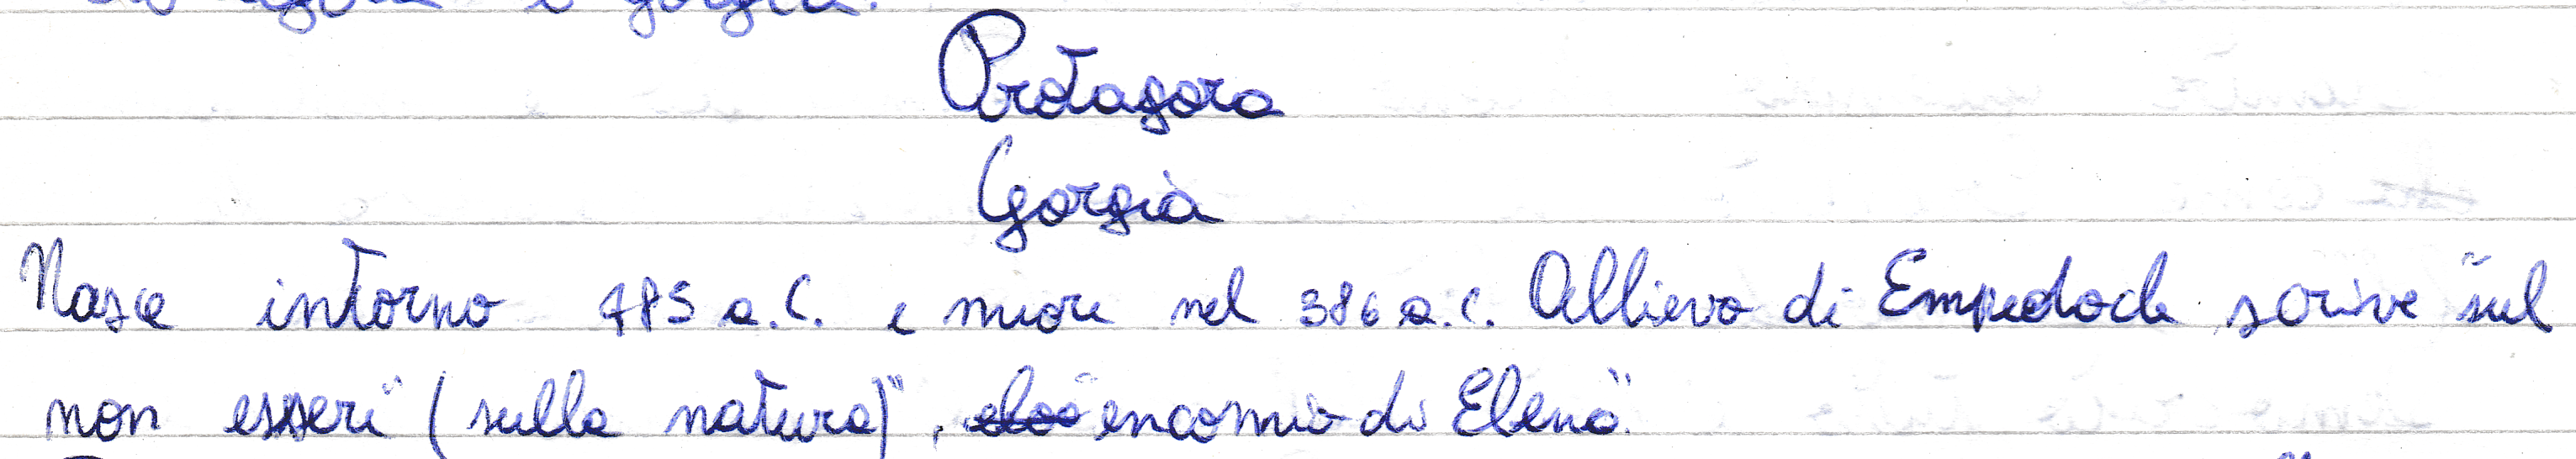 e gorgia.
Protagora
Gorgia
Nasce intorno 485 a.C. e muore nel 386 a.C. Allievo di Empedocle scrive "sul
non essere" (sulla natura)", "encomio di Elena"